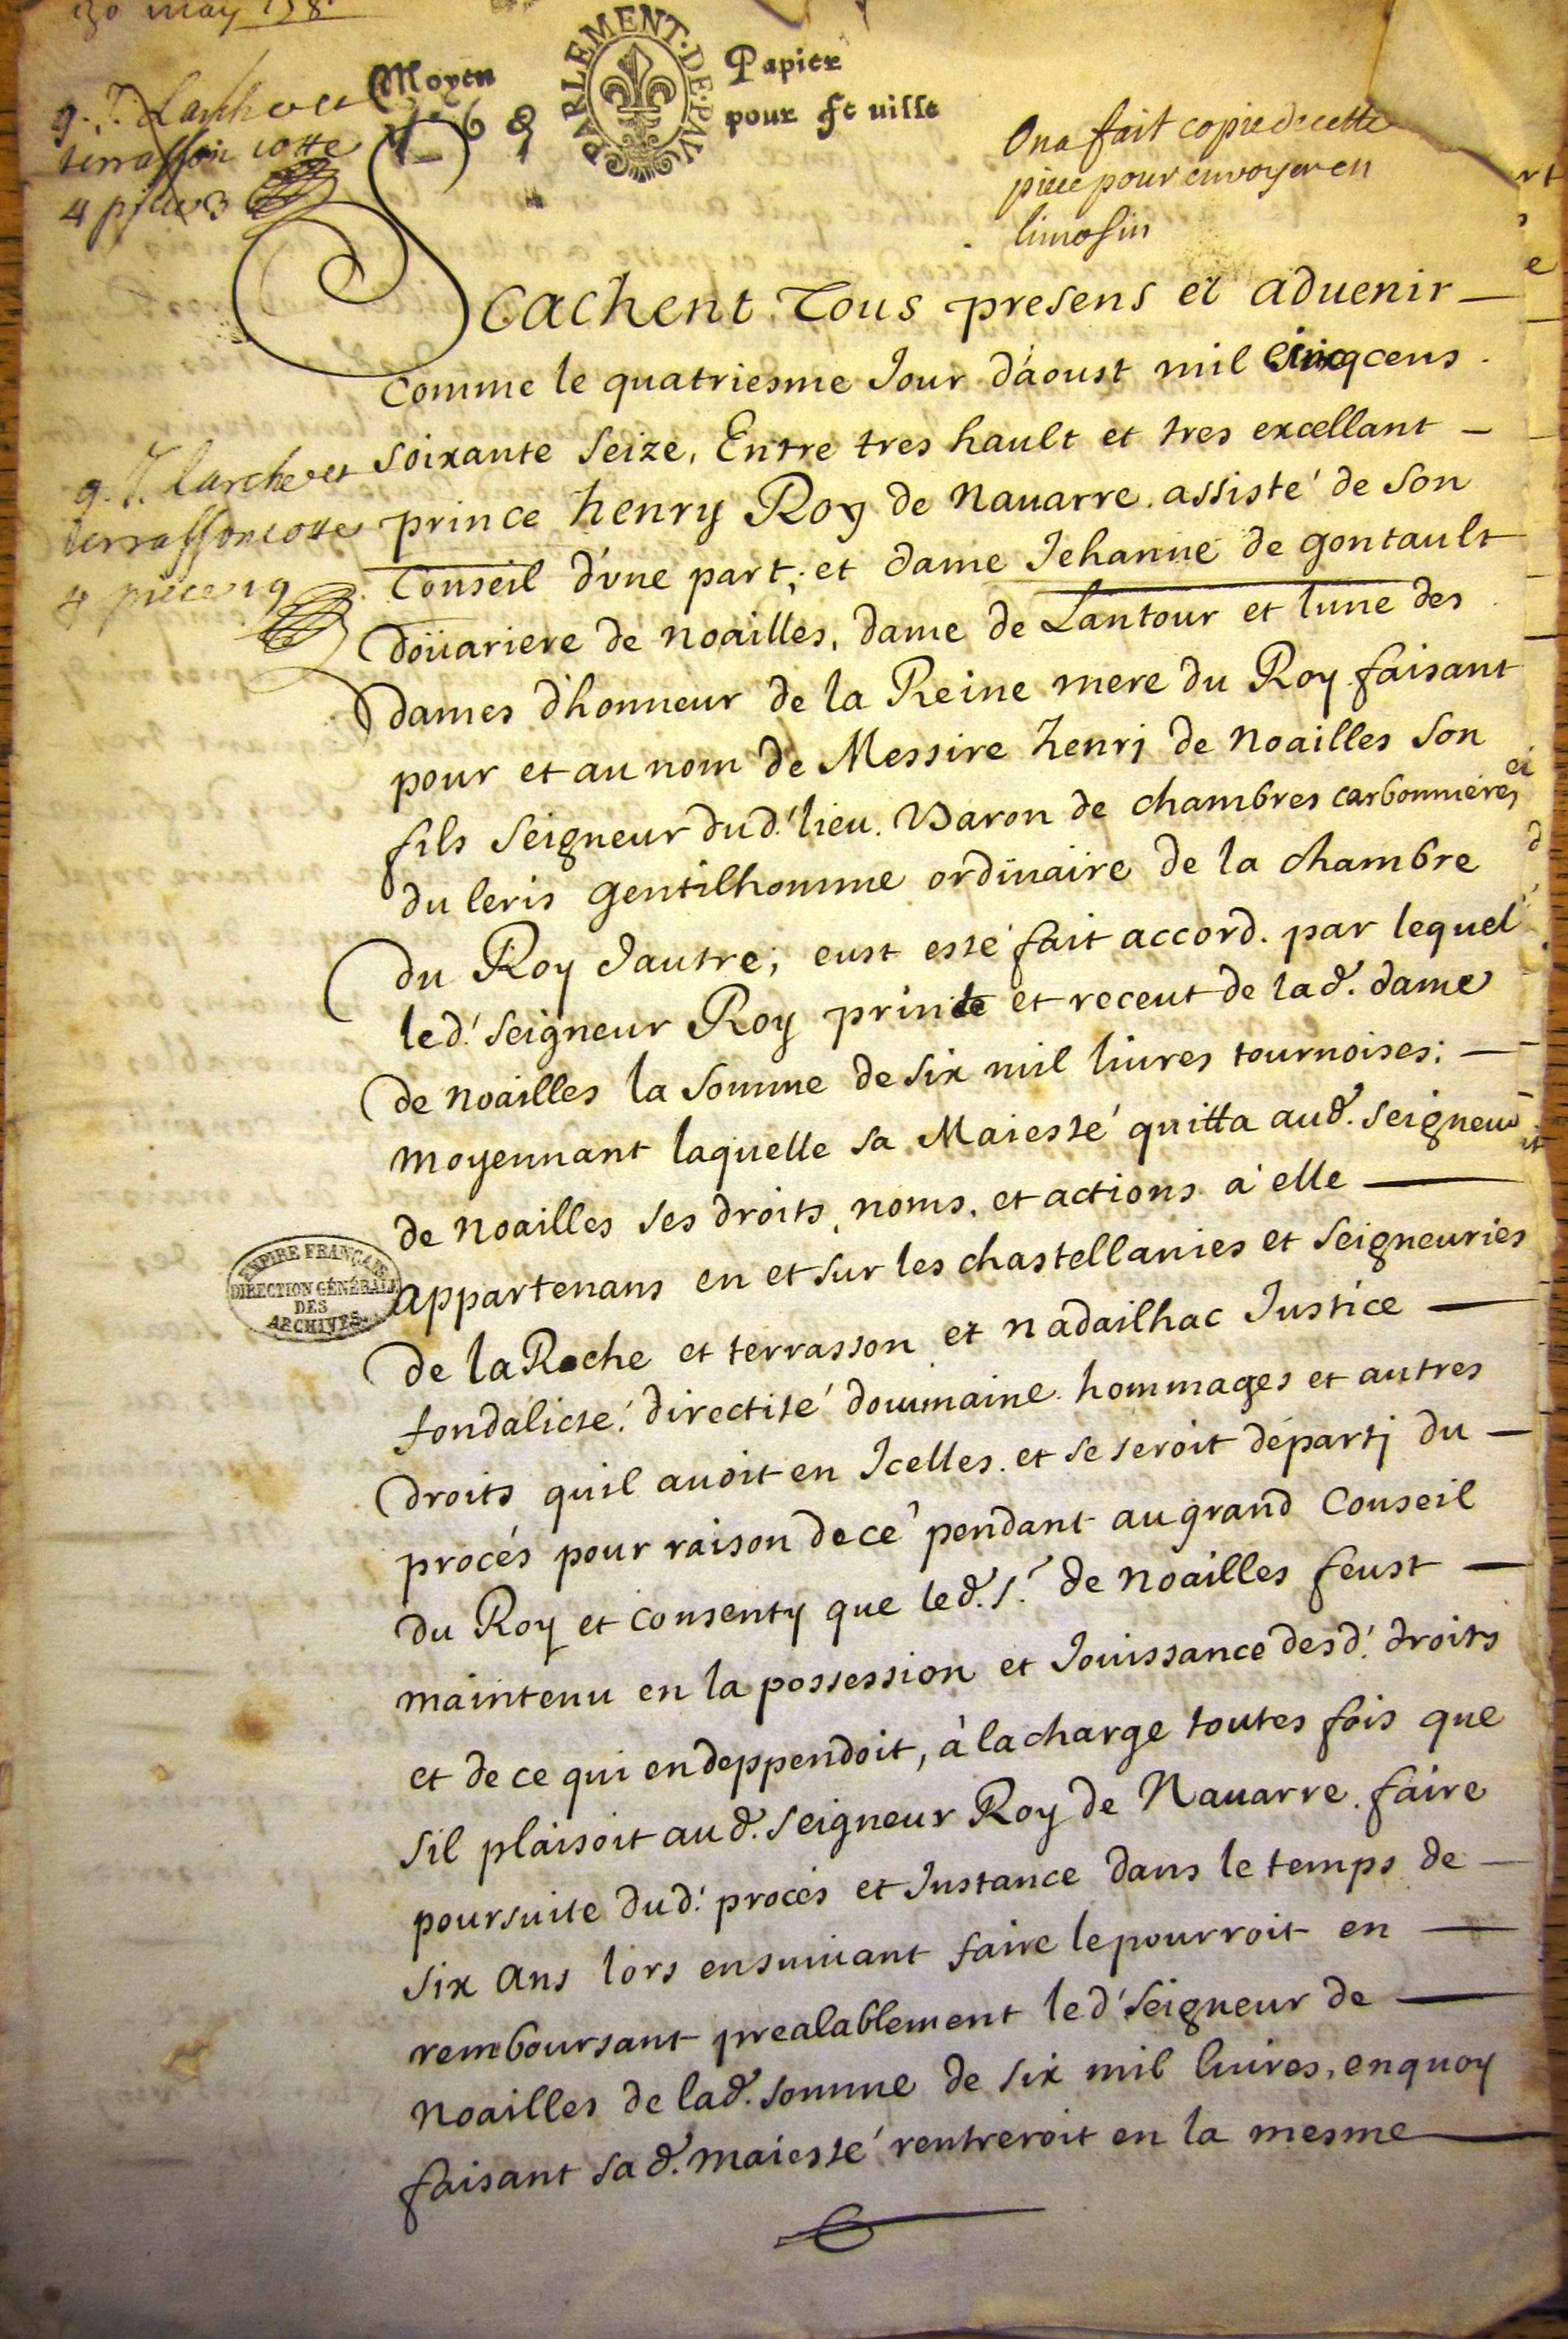 30 may 158
g. T. Larche et
terrasson cotte
4 piece 3
Moyen
1 6 8
PARLEMENT · DE · PAV
Papier
pour fe uille
On a fait copie de cette
piece pour envoyer en
limosin
Scachent Tous presens et aduenir
Comme le quatriesme Jour d'aoust mil Cinqcens
soixante seize, Entre tres hault et tres excellant
g. T. larche et
terrasson cotte
4 piece 19
prince henry Roy de Nauarre. assisté de son
Conseil d'vne part; et dame Jehanne de gontault
doüariere de noailles, dame de Lantour et lune des
dames d'honneur de la Reine mere du Roy faisant
pour et au nom de Messire henrj de noailles son
fils seigneur dud.' lieu. Baron de chambres carbonnieres et
du leris gentilhomme ordinaire de la chambre
du Roy dautre; eust esté fait accord. par lequel
led.' seigneur Roy prinde et receut de lad. dame
de noailles la somme de six mil liures tournoises;
moyennant laquelle sa Maiesté quitta aud. seigneur
de noailles ses droits, noms, et actions a elle
EMPIRE FRANÇAIS
DIRECTION GÉNÉRALE
DES
ARCHIVES
appartenans en et sur les chastellanies et seigneuries
de la Roche et terrasson et nadailhac Justice
fondalicté, directité doummaine. hommages et autres
droits quil auoit en Jcelles. et se seroit départj du
procés pour raison de cé pendant au grand Conseil
du Roy et consenty que led. s.r de noailles feust
maintenu en la possession et Jouissance desd.' droits
et de ce qui en deppendoit, à la charge toutes fois que
sil plaisoit aud. seigneur Roy de Nauarre. faire
poursuite dud.' procés et Instance dans le temps de
six ans lors ensuiuant faire le pourroit en
remboursant prealablement led' seigneur de
noailles de lad. somme de six mil liures, en quoy
faisant sad. maiesté rentreroit en la mesme